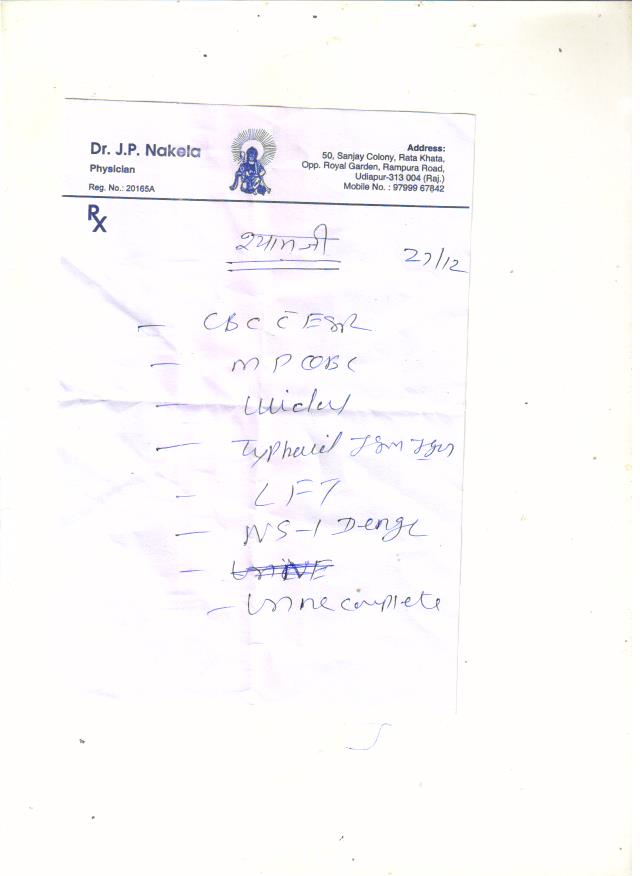 Dr. J.P. Nakela
Physician
Reg. No.: 20165A
Address:
50, Sanjay Colony, Rata Khata,
Opp. Royal Garden, Rampura Road,
Udiapur-313 004 (Raj.)
Mobile No. : 97999 67842
Rx
श्यामजी
27/12
- CBC c̄ ESR
- MP QBC
- Widal
- Typhoid IgM IgG
- LFT
- NS-1 Denge
- Urine complete